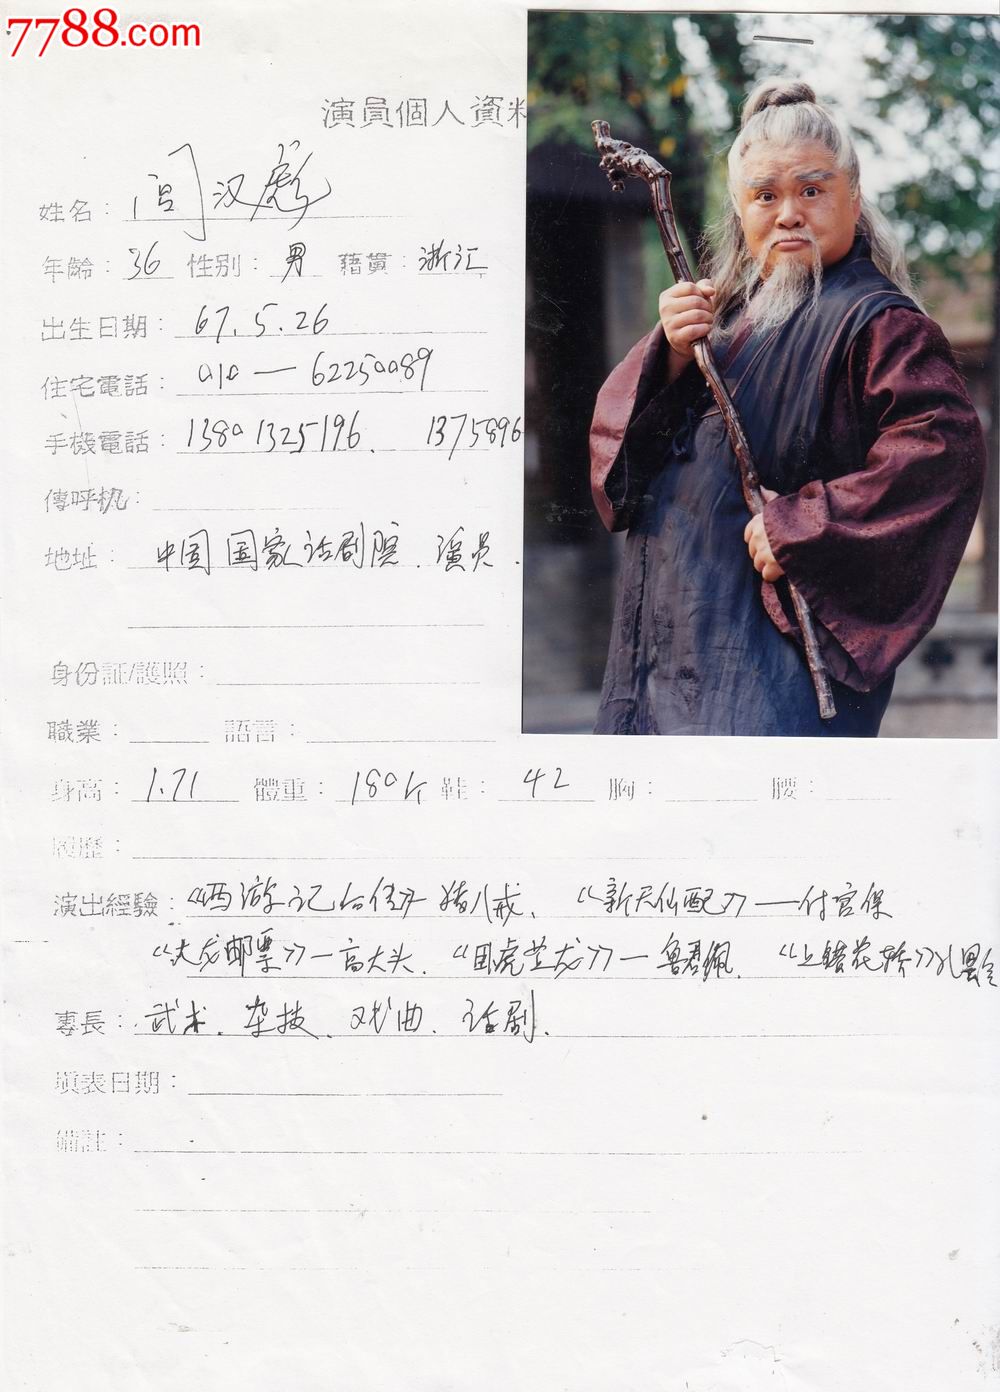 7788.com
演員個人資料
姓名：闫汉彪
年齡：36 性别：男 籍貫：浙江
出生日期：67.5.26
住宅電話：010—62250089
手機電話：13801325196. 1375896
傳呼机：
地址：中国国家话剧院.演员.
身份証/護照：
職業： 語言：
身高：1.71 體重：180斤 鞋：42 胸： 腰：
履歷：
演出經驗：《西游记后传》猪八戒、《新天仙配》—付官保
《大龙邮票》—高大头.《卧虎茔龙》—鲁君佩.《上错花轿》
專長：武术.杂技.戏曲.话剧.
填表日期：
備註：